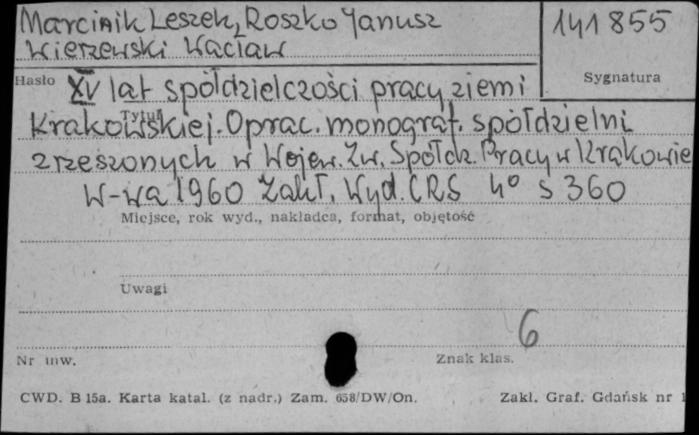 Marcinik Leszek, Roszko Janusz
Wierzewski Wacław
141855
Hasło
Sygnatura
XV lat spółdzielczości pracy ziemi
Tytuł
Krakowskiej. Oprac. monograf. spółdzielni
zrzeszonych w Wojew. Zw. Spółdz. Pracy w Krakowie
W-wa 1960 Zakł. Wyd. CRS 4° s 360
Miejsce, rok wyd., nakładca, format, objętość
Uwagi
6
Nr inw.
Znak klas.
CWD. B 15a. Karta katal. (z nadr.) Zam. 658/DW/On.
Zakł. Graf. Gdańsk nr 1